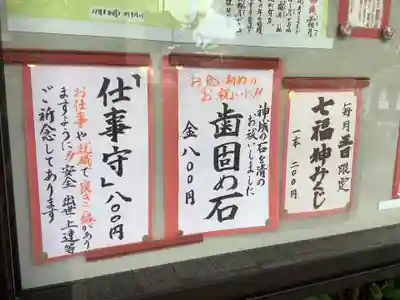 毎月五日限定
七福神みくじ
一本 二〇〇円
お食い初めの
お祝いに!!
神域の石を清め
お祓いしました
歯固め石
金八〇〇円
「仕事守」八〇〇円
お仕事や就職で良きご縁があり
ますように!!安全 出世 上達等
ご祈念してあります